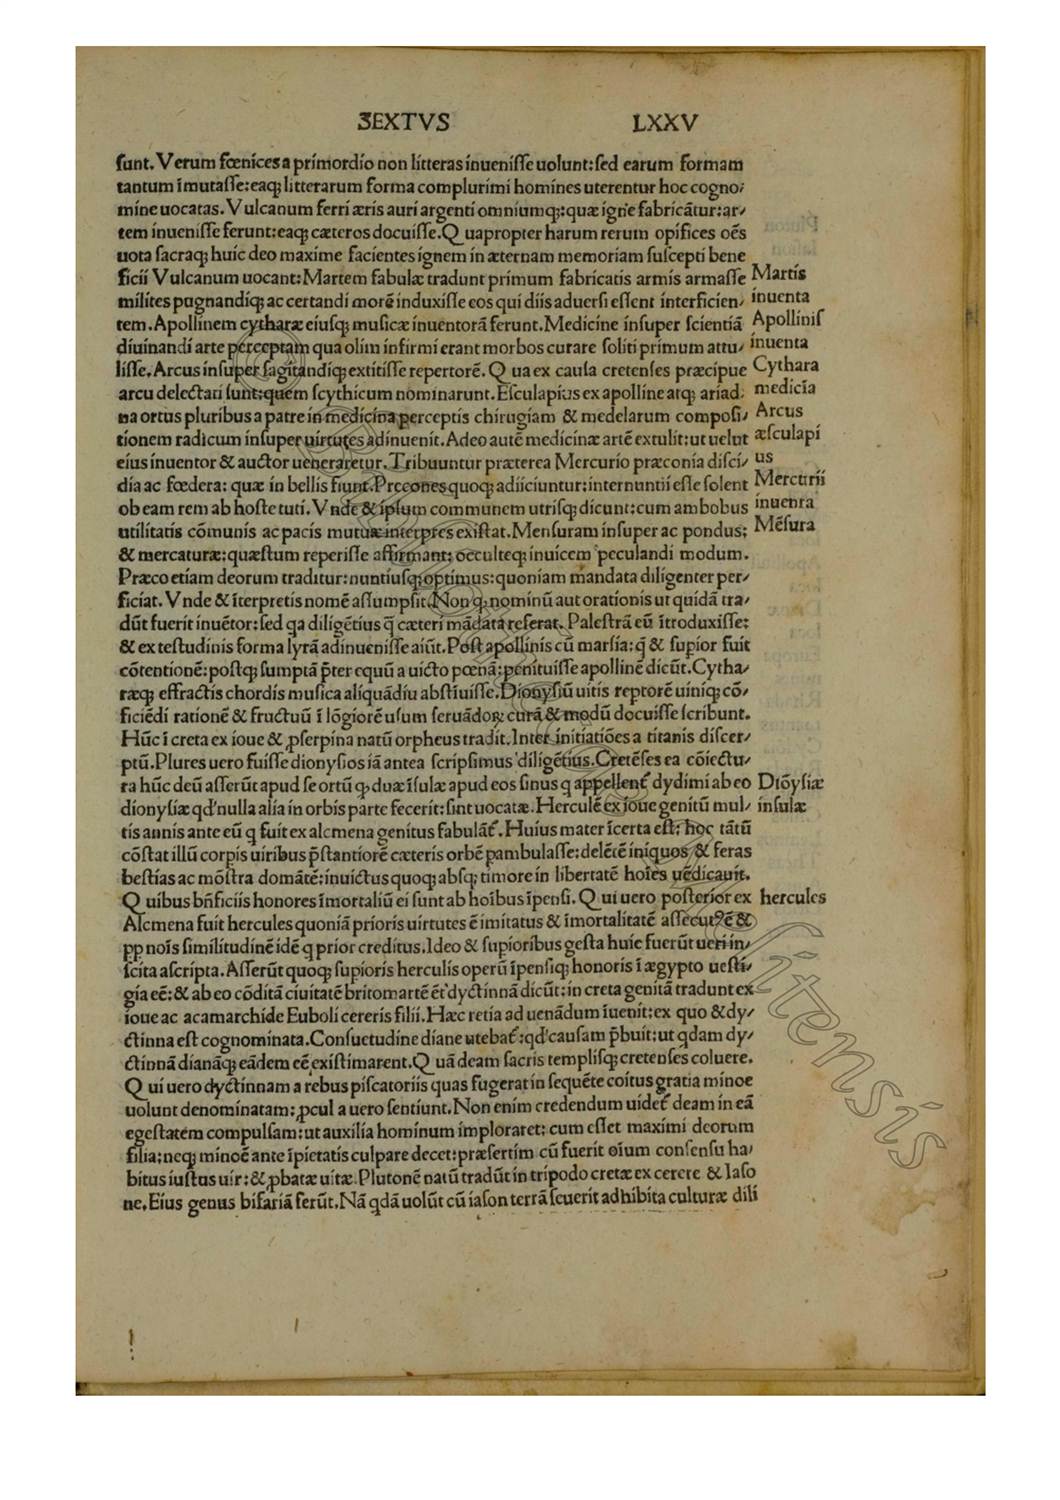 SEXTVS LXXV
sunt. Verum fœnices a primordio non litteras inuenisse uolunt: sed earum formam
tantum ĩmutasse: eaqȝ litterarum forma complurimi homines uterentur hoc cogno/
mine uocatas. Vulcanum ferri æris auri argenti omniumqȝ: quæ igne fabricãtur: ar/
tem inuenisse ferunt: eaqȝ cæteros docuisse. Quapropter harum rerum opifices oẽs
uota sacraqȝ huic deo maxime facientes ignem in æternam memoriam suscepti bene
ficii Vulcanum uocant: Martem fabulæ tradunt primum fabricatis armis armasse
milites pugnandiqȝ ac certandi morẽ induxisse eos qui diis aduersi essent interficien/
tem. Apollinem cytharæ eiusqȝ musicæ inuentorã ferunt. Medicine insuper scientiã
diuinandi arte perceptam qua olim infirmi erant morbos curare soliti primum attu/
lisse. Arcus insuper sagitandiqȝ extitisse repertorẽ. Qua ex causa cretenses præcipue
arcu delectati sunt: quem scythicum nominarunt. Esculapius ex apolline atqȝ ariad.
na ortus pluribus a patre in medicina perceptis chirugiam & medelarum composi/
tionem radicum insuper uirtutes adinuenit. Adeo autẽ medicinæ artẽ extulit: ut uelut
eius inuentor & auctor ueneraretur. Tribuuntur præterea Mercurio præconia disci/
dia ac fœdera: quæ in bellis fiunt. Precones quoqȝ adiiciuntur: internuntii esse solent
ob eam rem ab hoste tuti. Vnde & ipsum communem utrisqȝ dicunt: cum ambobus
utilitatis cõmunis ac pacis mutuæ interpres existat. Mensuram insuper ac pondus:
& mercaturæ: quæstum reperisse affirmant: occulteqȝ inuicem peculandi modum.
Præco etiam deorum traditur: nuntiusqȝ optimus: quoniam mandata diligenter per/
ficiat. Vnde & ĩterpretis nomẽ assumpsit. Non qȝ nominũ aut orationis ut quidã tra/
dũt fuerit inuẽtor: sed qa diligẽtius q̃ cæteri mãdata referat. Palestrã eũ ĩtroduxisse:
& ex testudinis forma lyrã adinuenisse aiũt. Post apollinis cũ marsia: q̃ & supior fuit
cõtentionẽ: postqȝ sumptã p̃ter equũ a uicto pœnã: penituisse apollinẽ dicũt. Cytha/
ræqȝ effractis chordis musica aliquãdiu abstiuisse. Dionysiũ uitis reptorẽ uiniqȝ cõ/
ficiẽdi rationẽ & fructuũ ĩ lõgiorẽ usum seruãdoꝝ curã & modũ docuisse scribunt.
Hũc ĩ creta ex ioue & ꝓserpina natũ orpheus tradit. Inter initiatiões a titanis discer/
ptũ. Plures uero fuisse dionysios iã antea scripsimus diligẽtius. Cretẽses ea cõiectu/
ra hũc deũ asserũt apud se ortũ qȝ duæ ĩsulæ apud eos sinus q appellent᷑ dydimi ab eo
dionysiæ qd' nulla alia in orbis parte fecerit: sint uocatæ. Herculẽ ex ioue genitũ mul/
tis annis ante eũ q fuit ex alcmena genitus fabulãt᷑. Huius mater ĩcerta est: hoc tãtũ
cõstat illũ corpis uiribus p̃stantiorẽ cæteris orbẽ pambulasse: delẽtẽ iniquos & feras
bestias ac mõstra domãtẽ: inuictus quoqȝ absqȝ timore in libertatẽ hoĩes uẽdicauit.
Quibus bñficiis honores ĩmortaliũ ei sunt ab hoĩbus ĩpensi. Qui uero posterior ex
Alcmena fuit hercules quoniã prioris uirtutes ẽ imitatus & ĩmortalitatẽ assecutꝰ ẽ &
pp noĩs similitudinẽ idẽ q prior creditus. Ideo & supioribus gesta huic fuerũt ueri in/
scita ascripta. Asserũt quoqȝ supioris herculis operũ ĩpensiqȝ honoris ĩ ægypto uesti/
gia eẽ: & ab eo cõditã ciuitatẽ britomartẽ ẽt᷑ dyctinnã dicũt: in creta genitã tradunt ex
ioue ac acamarchide Euboli cereris filii. Hæc retia ad uenãdum ĩuenit: ex quo & dy/
ctinna est cognominata. Consuetudine diane utebat᷑: qd' causam p̃buit: ut qdam dy/
ctinnã dianãqȝ eãdem eẽ existimarent. Quã deam sacris templisqȝ cretenses coluere.
Qui uero dyctinnam a rebus piscatoriis quas fugerat in sequẽte coitus gratia minoe
uolunt denominatam: ꝓcul a uero sentiunt. Non enim credendum uidet᷑ deam in eã
egestatem compulsam: ut auxilia hominum imploraret: cum esset maximi deorum
filia: neqȝ minoẽ ante ĩpietatis culpare decet: præsertim cũ fuerit oĩum consensu ha/
bitus iustus uir: & ꝓbatæ uitæ. Plutonẽ natũ tradũt in tripodo cretæ ex cerere & Iaso
ne. Eius genus bifariã ferũt. Nã qdã uolũt cũ iason terrã seuerit adhibita culturæ dili
Martis
inuenta
Apollinis
inuenta
Cythara
medicĩa
Arcus
æsculapi
us
Mercurii
inuenta
Mẽsura
Diõysiæ
insulæ
hercules